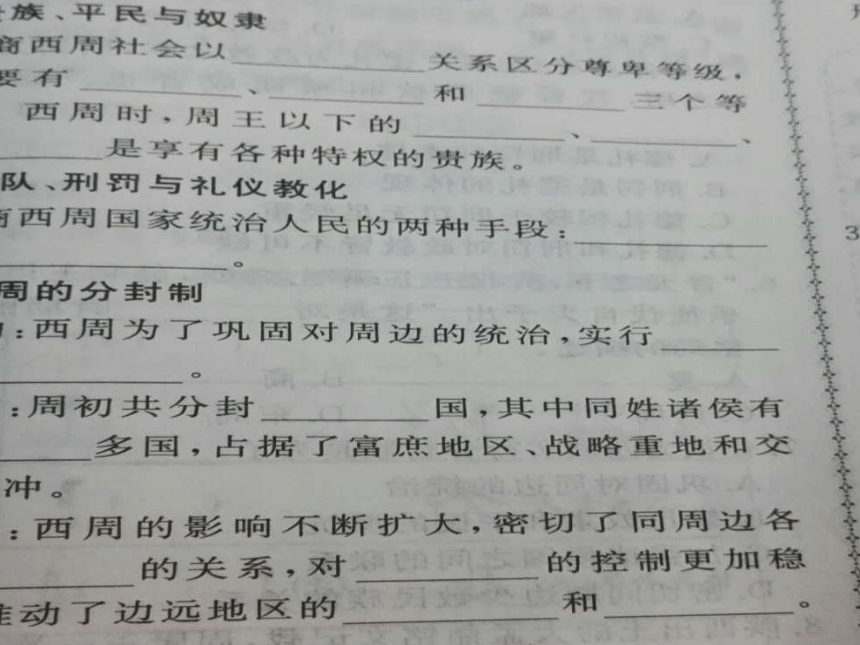 族、平民与奴隶
商西周社会以________关系区分尊卑等级，
要有________、________和________三个等
西周时，周王以下的________、________、
________是享有各种特权的贵族。
队、刑罚与礼仪教化
商西周国家统治人民的两种手段：________
________。
周的分封制
：西周为了巩固对周边的统治，实行________
________。
：周初共分封________国，其中同姓诸侯有
________多国，占据了富庶地区、战略重地和交
冲。
：西周的影响不断扩大，密切了同周边各
________的关系，对________的控制更加稳
推动了边远地区的________和________。
3